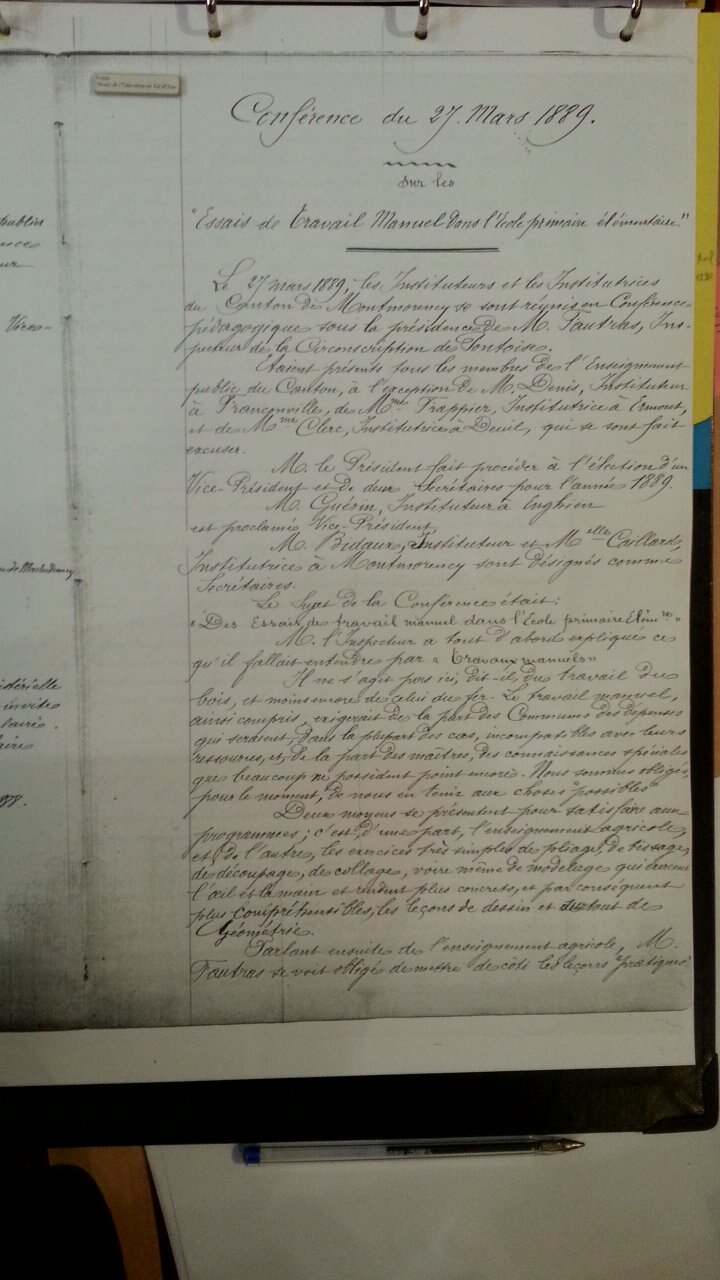 Musée de l'Education du Val d'Oise
Conférence du 27 Mars 1889.
sur les
"Essais de Travail Manuel dans l'Ecole primaire élémentaire"
Le 27 mars 1889, les Instituteurs et les Institutrices
du Canton de Montmorency se sont réunis en Conférence
pédagogique sous la présidence de M. Fautras, Ins-
pecteur de la Circonscription de Pontoise.
Etaient présents tous les membres de l'Enseignement
public du Canton, à l'exception de M. Denis, Instituteur
à Franconville, de Mme Frappier, Institutrice à Ermont,
et de Mme Clerc, Institutrice à Deuil, qui se sont fait
excuser.
M. le Président fait procéder à l'élection d'un
Vice-Président et de deux Secrétaires pour l'année 1889.
M. Guérin, Instituteur à Enghien
est proclamé Vice-Président.
M. Bidaux, Instituteur et Melle Caillard,
Institutrice à Montmorency sont désignés comme
Secrétaires.
Le Sujet de la Conférence était:
"Des Essais de travail manuel dans l'Ecole primaire élémre"
M. l'Inspecteur a tout d'abord expliqué ce
qu'il fallait entendre par "travaux manuels"
Il ne s'agit pas ici, dit-il, du travail du
bois, et moins encore de celui du fer. Le travail manuel,
ainsi compris, exigerait de la part des Communes des dépenses
qui seraient, dans la plupart des cas, incompatibles avec leurs
ressources, et, de la part des maîtres, des connaissances spéciales
que beaucoup ne possèdent point encore. Nous sommes obligés,
pour le moment, de nous en tenir aux choses "possibles"
Deux moyens se présentent pour satisfaire aux
programmes; c'est, d'une part, l'enseignement agricole,
et, de l'autre, les exercices très simples de pliage, de tissage,
de découpage, de collage, voire même de modelage qui exercent
l'œil et la main et rendent plus concrets, et par conséquent
plus compréhensibles, les leçons de dessin et surtout de
Géométrie.
Parlant ensuite de l'enseignement agricole, M.
Fautras se voit obligé de mettre de côté les leçons "pratiques"